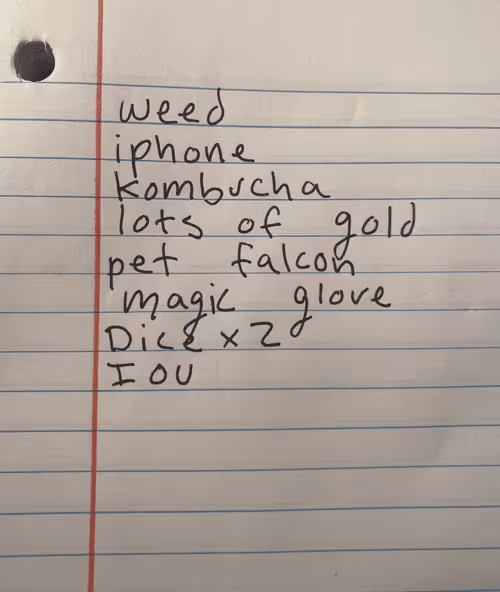 weed
iphone
kombucha
lots of gold
pet falcon
magic glove
Dice x 2
I OU